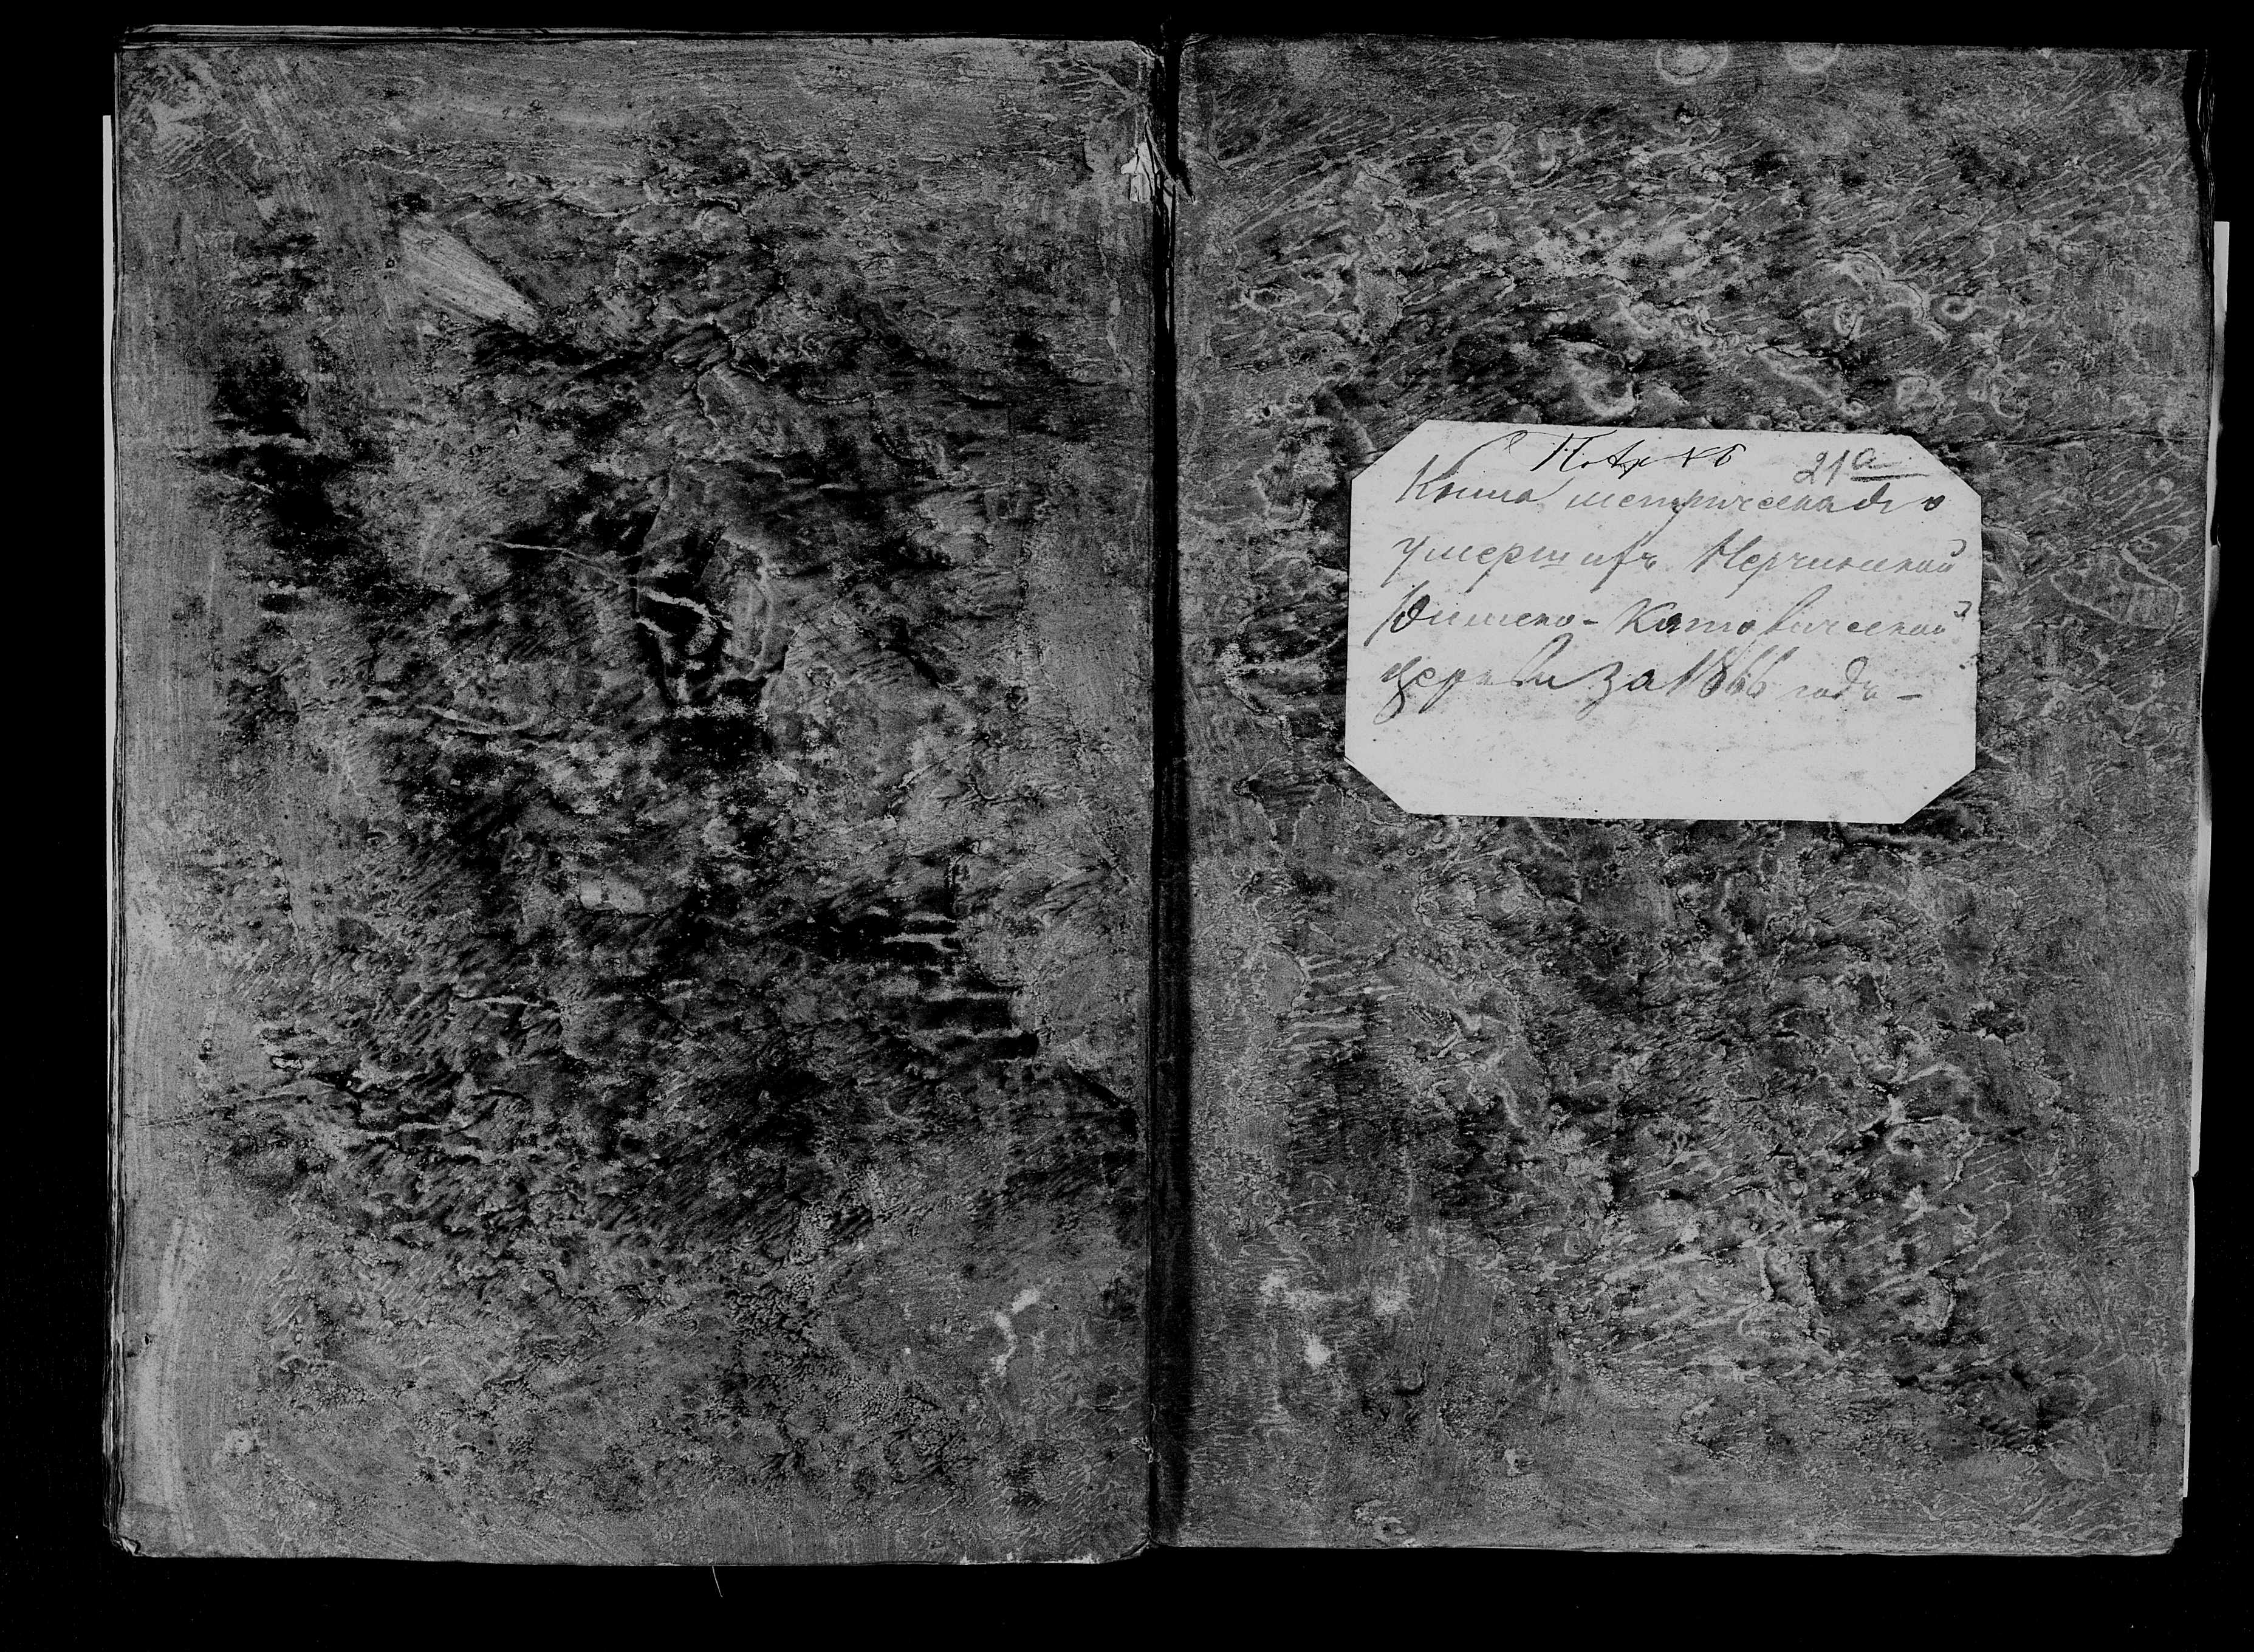 21а
Книга метрическая о
умершихъ Нерчинской
Римско-Католической
церкви за 1866 годъ –